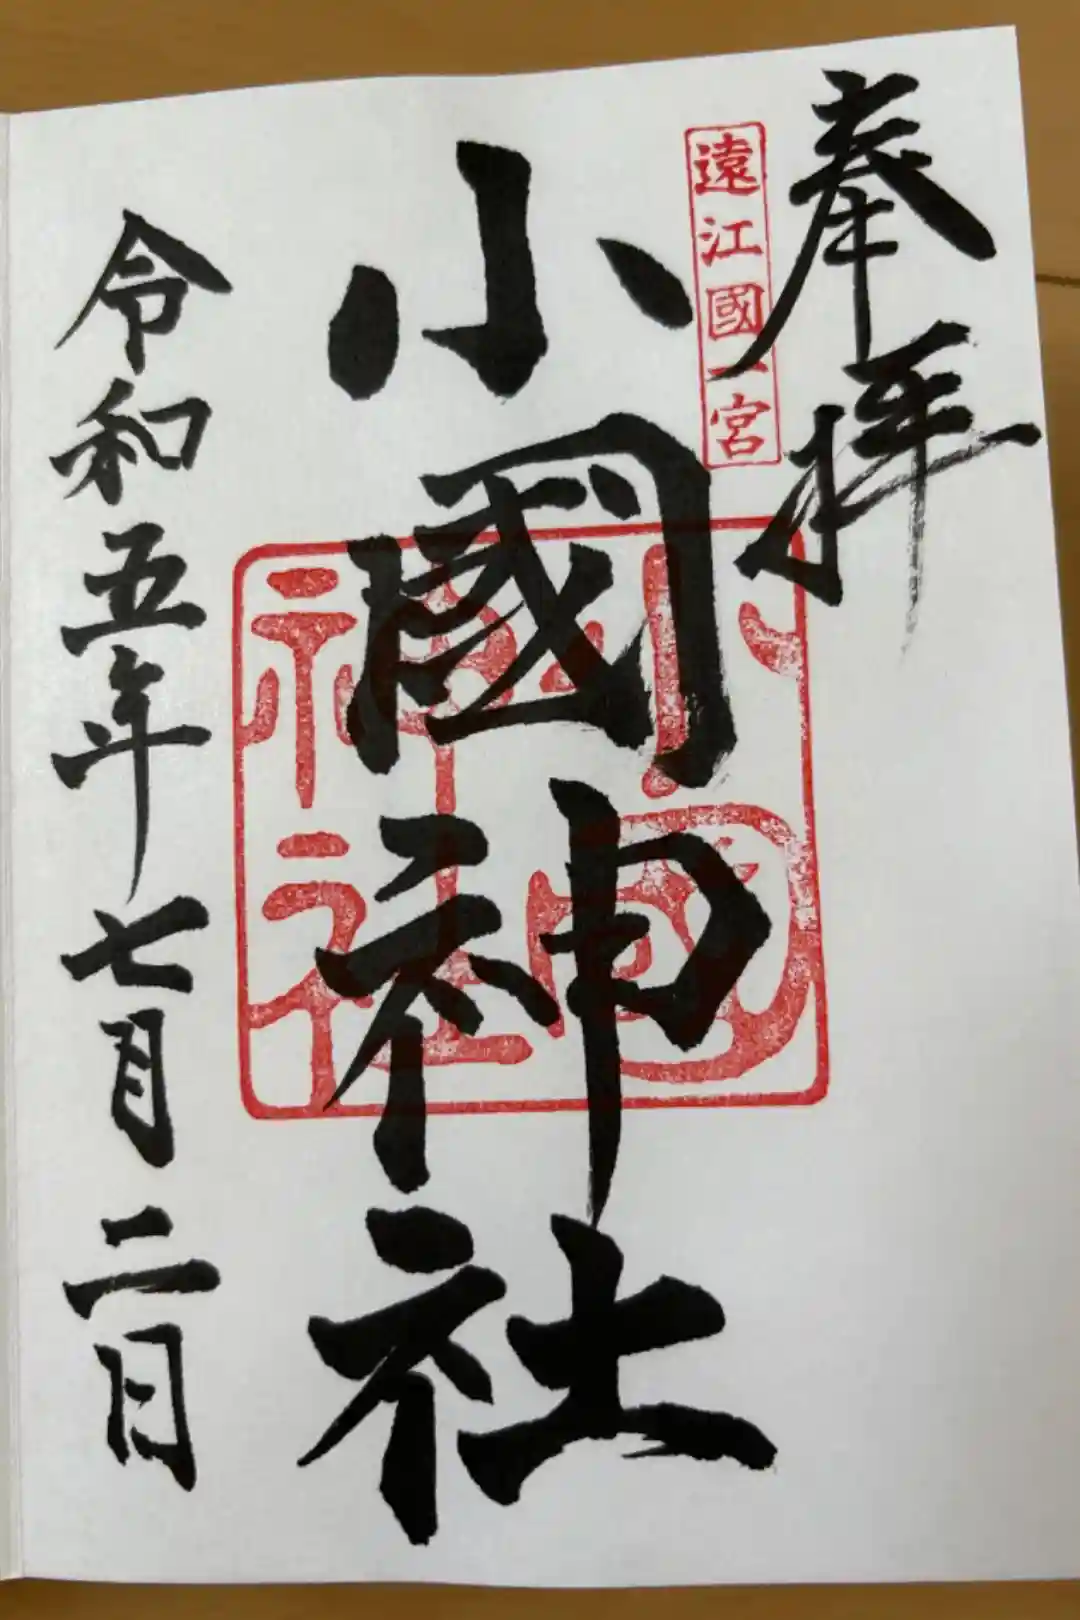 奉拝
遠江國一宮
小國神社
小國神社
令和五年七月二日